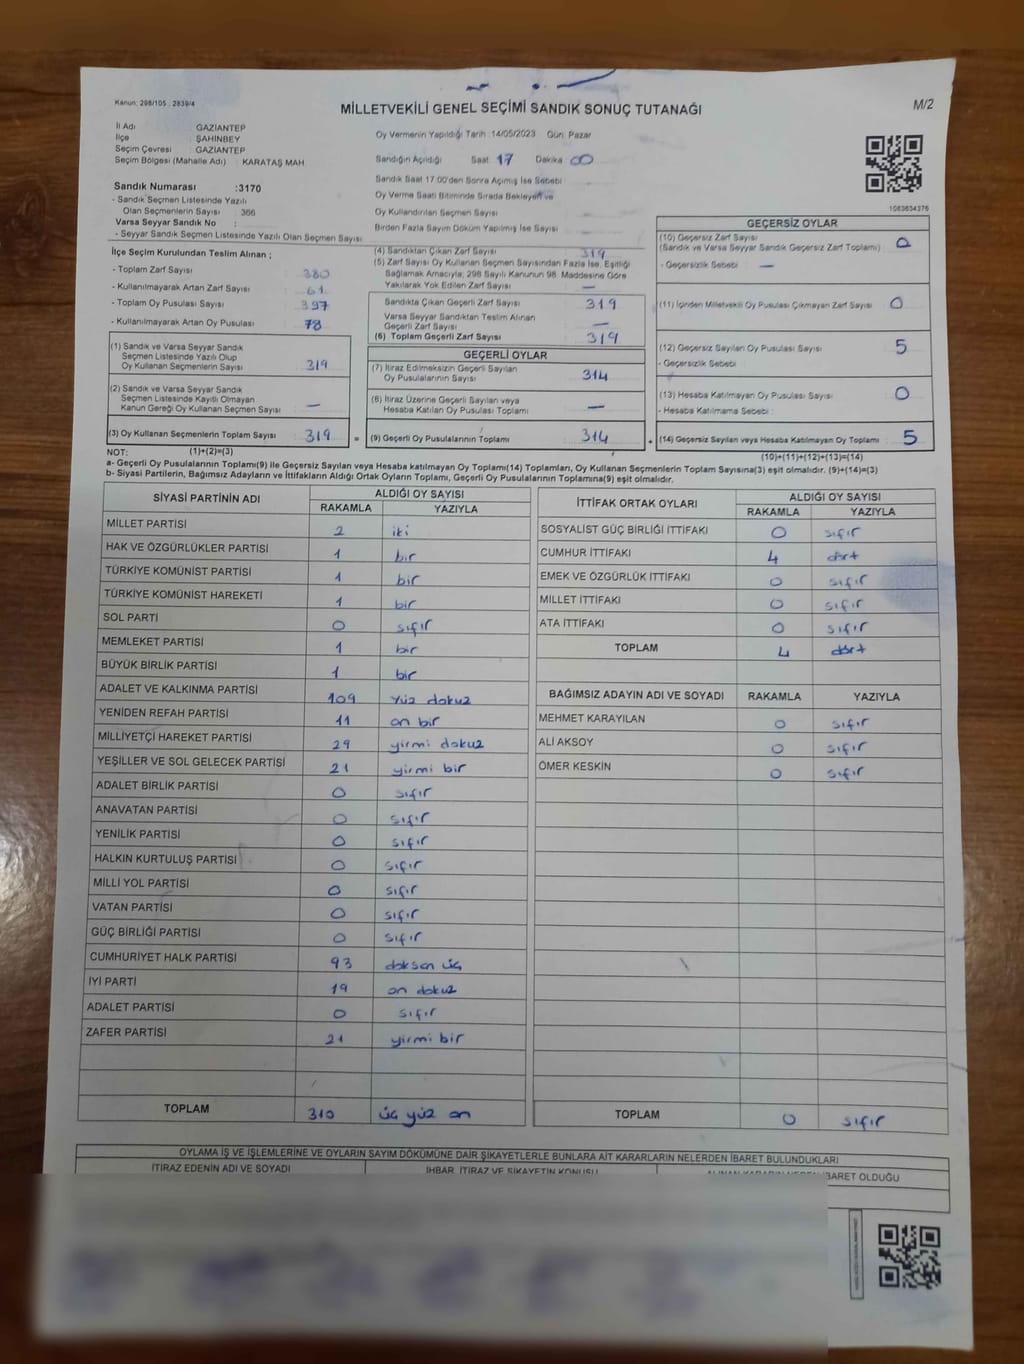 Kanun; 298/105 , 2839/4
MİLLETVEKİLİ GENEL SEÇİMİ SANDIK SONUÇ TUTANAĞI
M/2
İl Adı GAZIANTEP
İlçe ŞAHİNBEY
Seçim Çevresi : GAZİANTEP
Seçim Bölgesi (Mahalle Adı) : KARATAŞ MAH
Sandık Numarası :3170
- Sandık Seçmen Listesinde Yazılı
Olan Seçmenlerin Sayısı : 366
Varsa Seyyar Sandık No :
- Seyyar Sandık Seçmen Listesinde Yazılı Olan Seçmen Sayısı
Oy Vermenin Yapıldığı Tarih :14/05/2023 Gün: Pazar
Sandığın Açıldığı Saat 17 Dakika 00
Sandık Saat 17:00'den Sonra Açımış İse Sebebi
Oy Verme Saati Bitiminde Sırada Bekleyen ve
Oy Kullandırılan Seçmen Sayısı
Birden Fazla Sayım Döküm Yapılmış İse Sayısı
1083634376
İlçe Seçim Kurulundan Teslim Alınan ;
- Toplam Zarf Sayısı : 380
- Kullanılmayarak Artan Zarf Sayısı : 61
- Toplam Oy Pusulası Sayısı : 397
- Kullanılmayarak Artan Oy Pusulası : 78
(1) Sandık ve Varsa Seyyar Sandık
Seçmen Listesinde Yazılı Olup
Oy Kullanan Seçmenlerin Sayısı : 319
(2) Sandık ve Varsa Seyyar Sandık
Seçmen Listesinde Kayıtlı Olmayan
Kanun Gereği Oy Kullanan Seçmen Sayısı : —
(3) Oy Kullanan Seçmenlerin Toplam Sayısı : 319 =
(4) Sandıktan Çıkan Zarf Sayısı 319
(5) Zarf Sayısı Oy Kullanan Seçmen Sayısından Fazla İse, Eşitliği
Sağlamak Amacıyla, 298 Sayılı Kanunun 98. Maddesine Göre
Yakılarak Yok Edilen Zarf Sayısı : —
Sandıkta Çıkan Geçerli Zarf Sayısı 319
Varsa Seyyar Sandıktan Teslim Alınan
Geçerli Zarf Sayısı —
(6) Toplam Geçerli Zarf Sayısı 319
GEÇERLİ OYLAR
(7) İtiraz Edilmeksizin Geçerli Sayılan
Oy Pusulalarının Sayısı 314
(8) İtiraz Üzerine Geçerli Sayılan veya
Hesaba Katılan Oy Pusulası Toplamı —
(9) Geçerli Oy Pusulalarının Toplamı 314 +
GEÇERSİZ OYLAR
(10) Geçersiz Zarf Sayısı
(Sandık ve Varsa Seyyar Sandık Geçersiz Zarf Toplamı) : 0
- Geçersizlik Sebebi : —
(11) İçinden Milletvekili Oy Pusulası Çıkmayan Zarf Sayısı 0
(12) Geçersiz Sayılan Oy Pusulası Sayısı : 5
- Geçersizlik Sebebi
(13) Hesaba Katılmayan Oy Pusulası Sayısı : 0
- Hesaba Katılmama Sebebi :
(14) Geçersiz Sayılan veya Hesaba Katılmayan Oy Toplamı : 5
NOT: (1)+(2)=(3)
(10)+(11)+(12)+(13)=(14)
a- Geçerli Oy Pusulalarının Toplamı(9) ile Geçersiz Sayılan veya Hesaba katılmayan Oy Toplamı(14) Toplamları, Oy Kullanan Seçmenlerin Toplam Sayısına(3) eşit olmalıdır. (9)+(14)=(3)
b- Siyasi Partilerin, Bağımsız Adayların ve İttifakların Aldığı Ortak Oyların Toplamı, Geçerli Oy Pusulalarının Toplamına(9) eşit olmalıdır.
SİYASİ PARTİNİN ADI ALDIĞI OY SAYISI
RAKAMLA YAZIYLA
MİLLET PARTİSİ 2 iki
HAK VE ÖZGÜRLÜKLER PARTİSİ 1 bir
TÜRKİYE KOMÜNİST PARTİSİ 1 bir
TÜRKİYE KOMÜNİST HAREKETİ 1 bir
SOL PARTİ 0 sıfır
MEMLEKET PARTİSİ 1 bir
BÜYÜK BİRLİK PARTİSİ 1 bir
ADALET VE KALKINMA PARTİSİ 109 yüz dokuz
YENİDEN REFAH PARTİSİ 11 on bir
MİLLİYETÇİ HAREKET PARTİSİ 29 yirmi dokuz
YEŞİLLER VE SOL GELECEK PARTİSİ 21 yirmi bir
ADALET BİRLİK PARTİSİ 0 sıfır
ANAVATAN PARTİSİ 0 sıfır
YENİLİK PARTİSİ 0 sıfır
HALKIN KURTULUŞ PARTİSİ 0 sıfır
MİLLİ YOL PARTİSİ 0 sıfır
VATAN PARTİSİ 0 sıfır
GÜÇ BİRLİĞİ PARTİSİ 0 sıfır
CUMHURİYET HALK PARTİSİ 93 doksan üç
İYİ PARTİ 19 on dokuz
ADALET PARTİSİ 0 sıfır
ZAFER PARTİSİ 21 yirmi bir
TOPLAM 310 üç yüz on
İTTİFAK ORTAK OYLARI ALDIĞI OY SAYISI
RAKAMLA YAZIYLA
SOSYALİST GÜÇ BİRLİĞİ İTTİFAKI 0 sıfır
CUMHUR İTTİFAKI 4 dört
EMEK VE ÖZGÜRLÜK İTTİFAKI 0 sıfır
MİLLET İTTİFAKI 0 sıfır
ATA İTTİFAKI 0 sıfır
TOPLAM 4 dört
BAĞIMSIZ ADAYIN ADI VE SOYADI RAKAMLA YAZIYLA
MEHMET KARAYILAN 0 sıfır
ALİ AKSOY 0 sıfır
ÖMER KESKİN 0 sıfır
TOPLAM 0 sıfır
OYLAMA İŞ VE İŞLEMLERİNE VE OYLARIN SAYIM DÖKÜMÜNE DAİR ŞİKAYETLERLE BUNLARA AİT KARARLARIN NELERDEN İBARET BULUNDUKLARI
İTİRAZ EDENİN ADI VE SOYADI İHBAR, İTİRAZ VE ŞİKAYETİN KONUSU ALINAN KARARIN NEDEN İBARET OLDUĞU